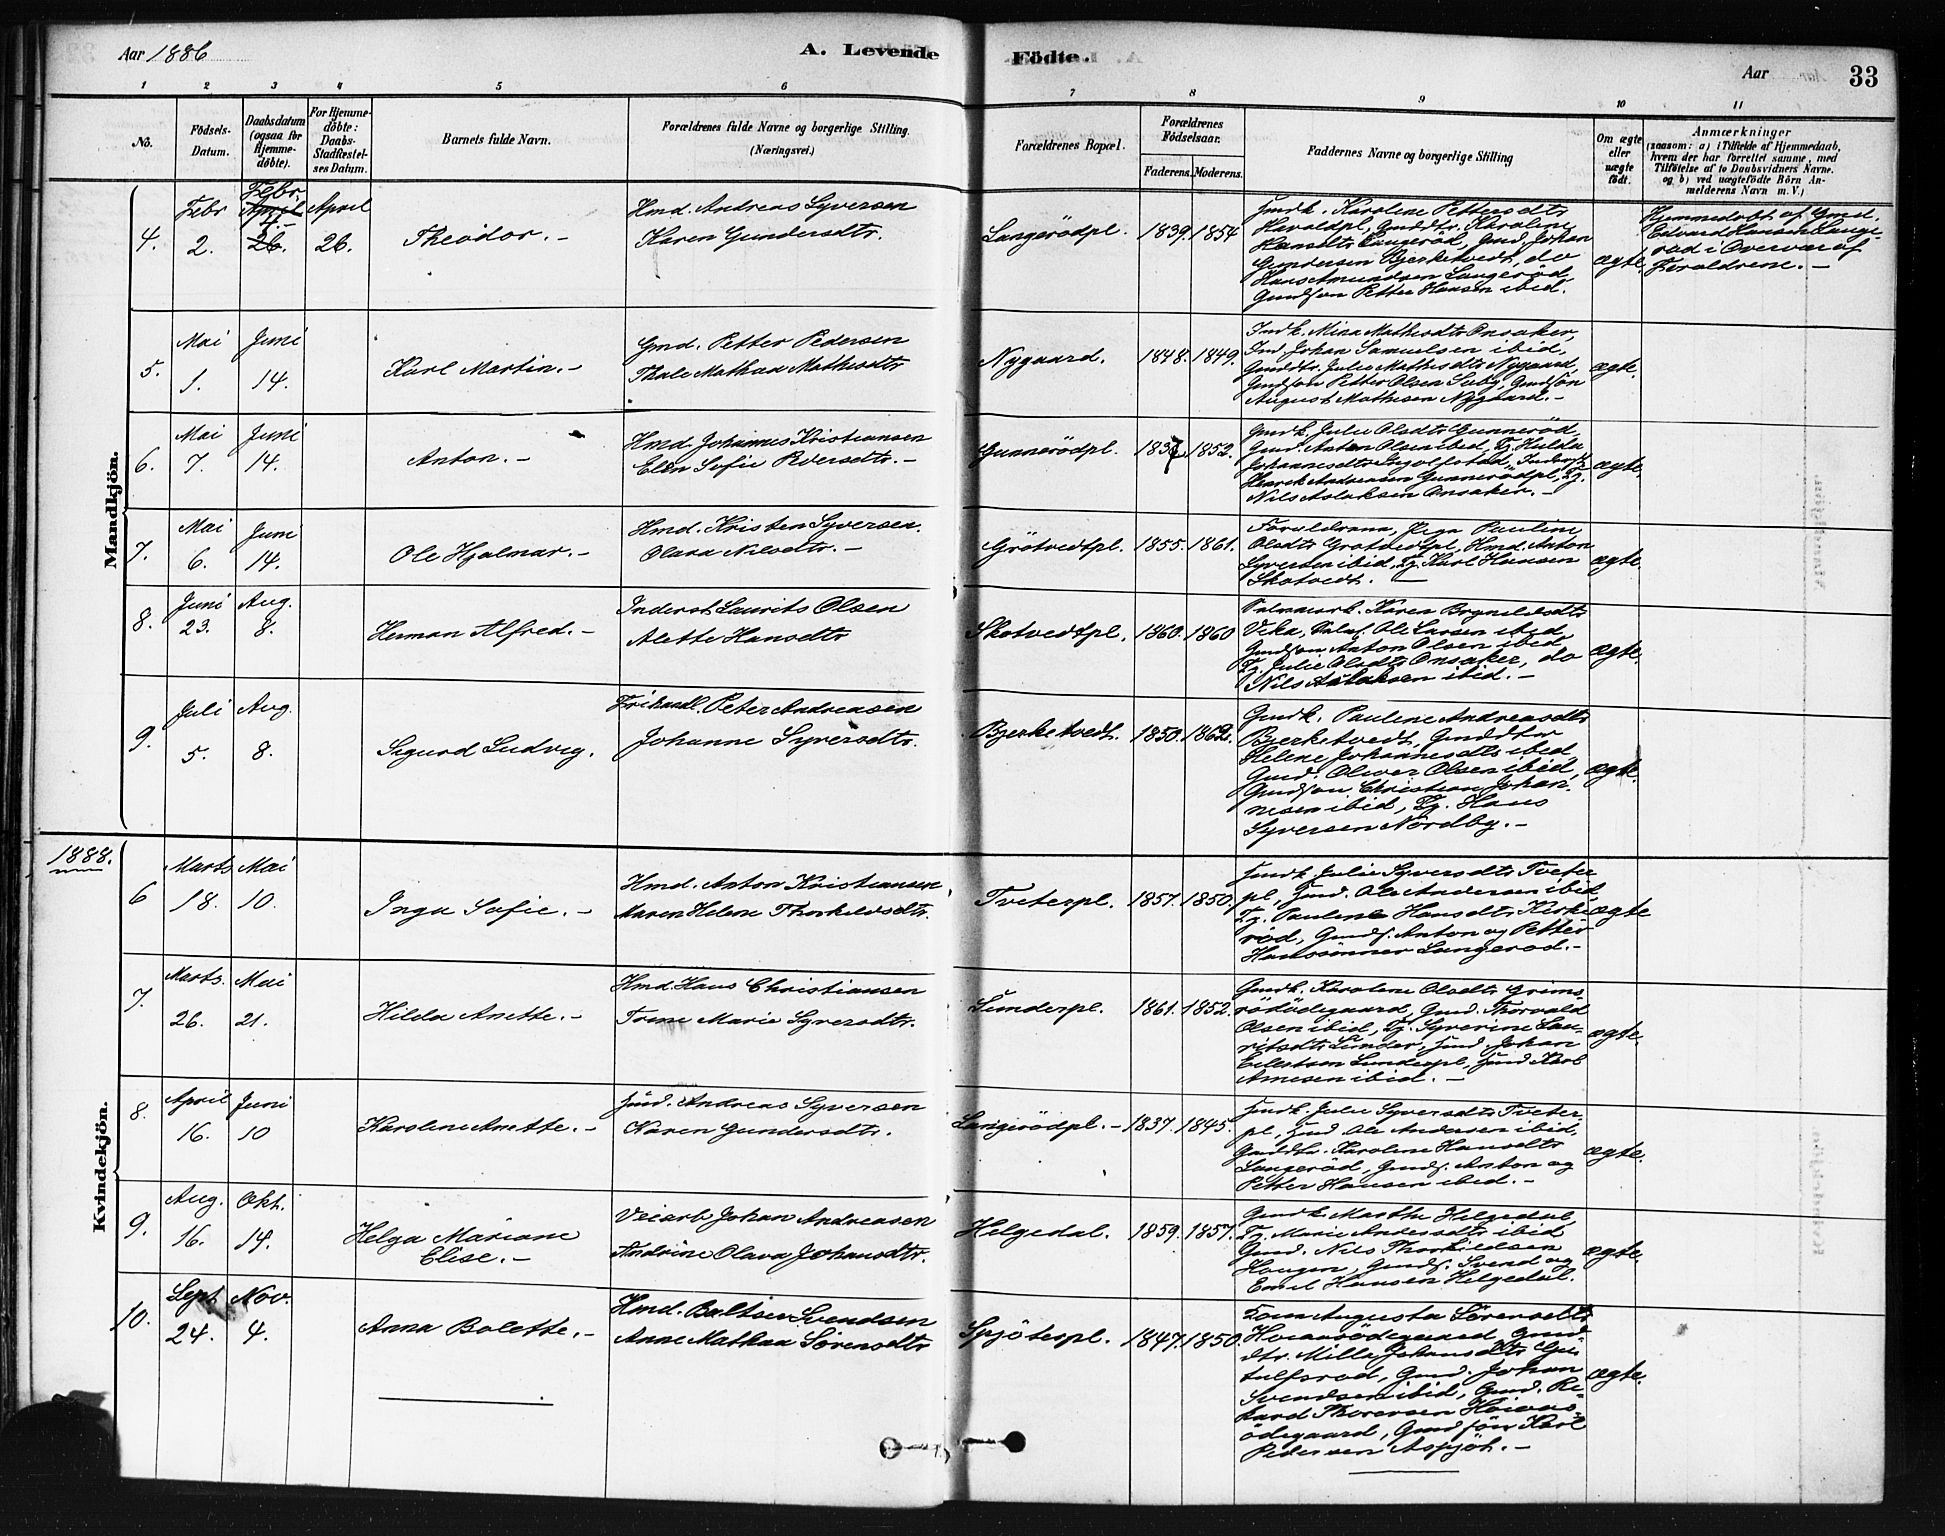 Aar 1886
A. Levende
Födte.
Aar
33
1 2 3 4 5 6 7 8 9 10 11
No.
Födsels-
Datum.
Daabsdatum
(ogsaa for
Hjemme-
döbte).
For Hjemme-
döbte:
Daabs-
Stadfæstel-
ses Datum.
Barnets fulde Navn.
Forældrenes fulde Navne og borgerlige Stilling.
(Næringsvei.)
Forældrenes Bopæl.
Forældrenes
Födselsaar.
Faderens.
Moderens.
Faddernes Navne og borgerlige Stilling
Om ægte
eller
uægte
født.
Anmærkninger
(saasom: a) i Tilfælde af Hjemmedaab,
hvem der har forrettet samme, med
Tilføielse af to Daabsvidners Navne.
og b) ved uægtefödte Börn An-
melderens Navn m. V.)
Mandkjön.
4.
Febr
2.
Febr.
April
26.
April
26.
Theodor. -
Hmd. Andreas Syversen
Karen Gundersdtr.
Langerödpl.
1839. 1854
Gmdk. Karoline Pettersdtr
Haraldpl, Gmddtr. Karoline
Hansdtr Langeröd, Gmd. Johan
Gundersen Bjerketvedt, do
Hans Amundsen Langeröd,
Gmdsön Petter Hansen ibid.
ægte.
Hjemmedøbt af Gmd.
Edvard Hansen Lange-
röd i Overvær af
Forældrene. -
5.
Mai
1.
Juni
14.
Karl Martin. -
Gmd. Petter Pedersen
Thale Mathea Mathisdtr
Nygaard.
1848. 1849.
Gmdk. Mina Mathisdtr Onsaker,
Gmd Johan Samuelsen ibid,
Gmddtr. Julie Mathisdtr Nygaard,
Gmdsön Petter Olsen Suby, Gmdsön
August Mathisen Nygaard. -
ægte.
6.
Mai
7.
Juni
14.
Anton. -
Hmd. Johannes Kristiansen
Elen Sofie Iversdtr. -
Gunnerödpl.
1837. 1852.
Gmdk. Julie Olsdtr Gunneröd,
Gmd. Anton Olsen ibid, Tj. Hulda
Johannesdtr Ingolfstad,
Henrik Andreasen Gunnerödpl, Tj.
Nils Aslaksen Onsaker. -
ægte.
7.
Mai
6.
Juni
14.
Ole Hjalmar. -
Hmd. Kristen Syversen.
Olava Nilsdtr. -
Grötvedtpl.
1855. 1861.
Forældrene, Pige Pauline
Olsdtr Grötvedtpl, Hmd. Anton
Syversen ibid, Tj. Karl Hansen
Skotvedt. -
ægte.
8.
Juni
23.
Aug.
8.
Herman Alfred. -
Inderst Laurits Olsen
Alette Hansdtr
Skotvedtpl.
1860. 1860
Karen Brynildsdtr
Vika, Ole Larsen ibid
Gmdsön Anton Olsen ibid,
Tj. Julie Olsdtr Onsaker, do
Nils Aslaksen ibid. -
ægte.
9.
Juli
5.
Aug.
8.
Sigurd Ludvig.
Frihandl. Peter Andreasen
Johanne Syversdtr.
Bjerketvedt.
1850. 1862.
Gmdk. Pauline Andreasdtr
Bjerketvedt, Gmddtr
Helene Johannesdtr ibid
Gmd. Oliver Olsen ibid,
Gmdsön Christian Johan-
nesen ibid, Tj. Hans
Syversen Nordby. -
ægte.
1888.
Kvindekjön.
6
Marts
18.
Mai
10.
Inga Sofie. -
Hmd. Anton Kristiansen
Maren Helene Thorkildsdtr.
Tveterpl.
1857. 1850.
Hmdk. Julie Syversdtr Tveter
pl, Hmd. Ole Andersen ibid,
Tj. Pauline Hansdtr Kirke-
röd, Gmds. Anton og Petter
Hanssönner Langeröd. -
ægte
7.
Marts.
26.
Mai
21.
Hilda Anette. -
Hmd. Hans Christiansen
Trine Marie Syversdtr.
Lunderpl.
1861. 1852.
Gmdk. Karoline Olsdtr Grims-
rödödegaard, Gmd. Thorvald
Olsen ibid, Tj. Syverine Lau-
ritsdtr Lunder, Hmd. Johan
Ellestsen Lunderpl, Hmd Karl
Arnesen ibid. -
ægte.
8.
April
16.
Juni
10
Karoline Anette. -
Hmd. Andreas Syversen
Karen Gundersdtr.
Langerödpl. -
1837. 1845.
Hmdk. Julie Syversdtr Tveter-
pl, Hmd Ole Andersen ibid,
Gmddtr. Karoline Hansdtr
Langeröd, Gmds. Anton og
Petter Hansen ibid. -
ægte.
9.
Aug.
16.
Okt.
14.
Helga Mariane
Elise. -
Veiarb. Johan Andreasen
Andrine Olava Johansdtr.
Helgedal.
1859. 1857.
Gmdk. Marthe Helgedal,
Tj. Marie Andersdtr ibid
Gmd. Nils Thorkildsen
Hougen, Gmds. Svend og
Emil Hansen Helgedal.
ægte.
10.
Sept
24.
Nov.
4.
Anna Bolette. -
Hmd. Baltser Svendsen
Anne Mathea Sörensdtr
Spjöterpl.
1847. 1850.
Augusta Sörensdtr
Hoiaasödegaard, Gmd-
dtr. Milla Johansdtr Gu-
tulfsröd, Gmd. Johan
Svendsen ibid, Gmd. Ri-
kard Thoresen Hoiaas-
ödegaard, Gmdsön Karl
Pedersen Aspjöt. -
ægte.